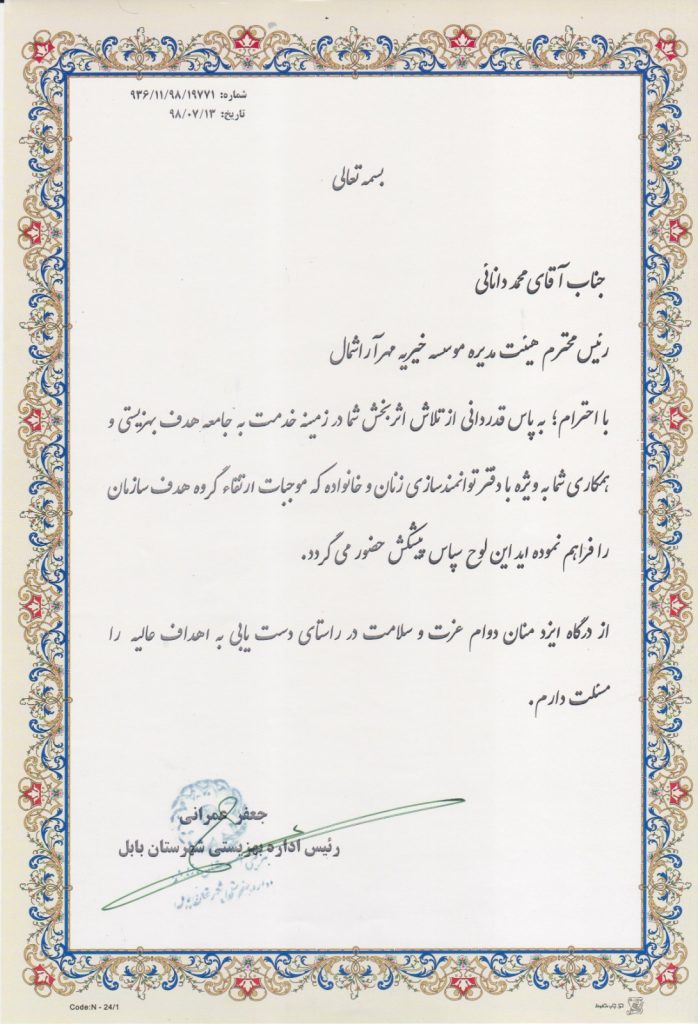 شماره: ۹۳۶/۱۱/۹۸/۱۹۷۷۱
تاریخ: ۹۸/۰۷/۱۳
بسمه تعالی
جناب آقای محمد دانائی
رئیس محترم هیئت مدیره موسسه خیریه مهرآرا شمال
با احترام؛ به پاس قدردانی از تلاش اثربخش شما در زمینه خدمت به جامعه هدف بهزیستی و
همکاری شما به ویژه با دفتر توانمندسازی زنان و خانواده که موجبات ارتقاء گروه هدف سازمان
را فراهم نموده اید این لوح سپاس پیشکش حضور می گردد.
از درگاه ایزد منان دوام عزت و سلامت در راستای دست یابی به اهداف عالیه را
مسئلت دارم.
جعفر عمرانی
رئیس اداره بهزیستی شهرستان بابل
Code:N - 24/1